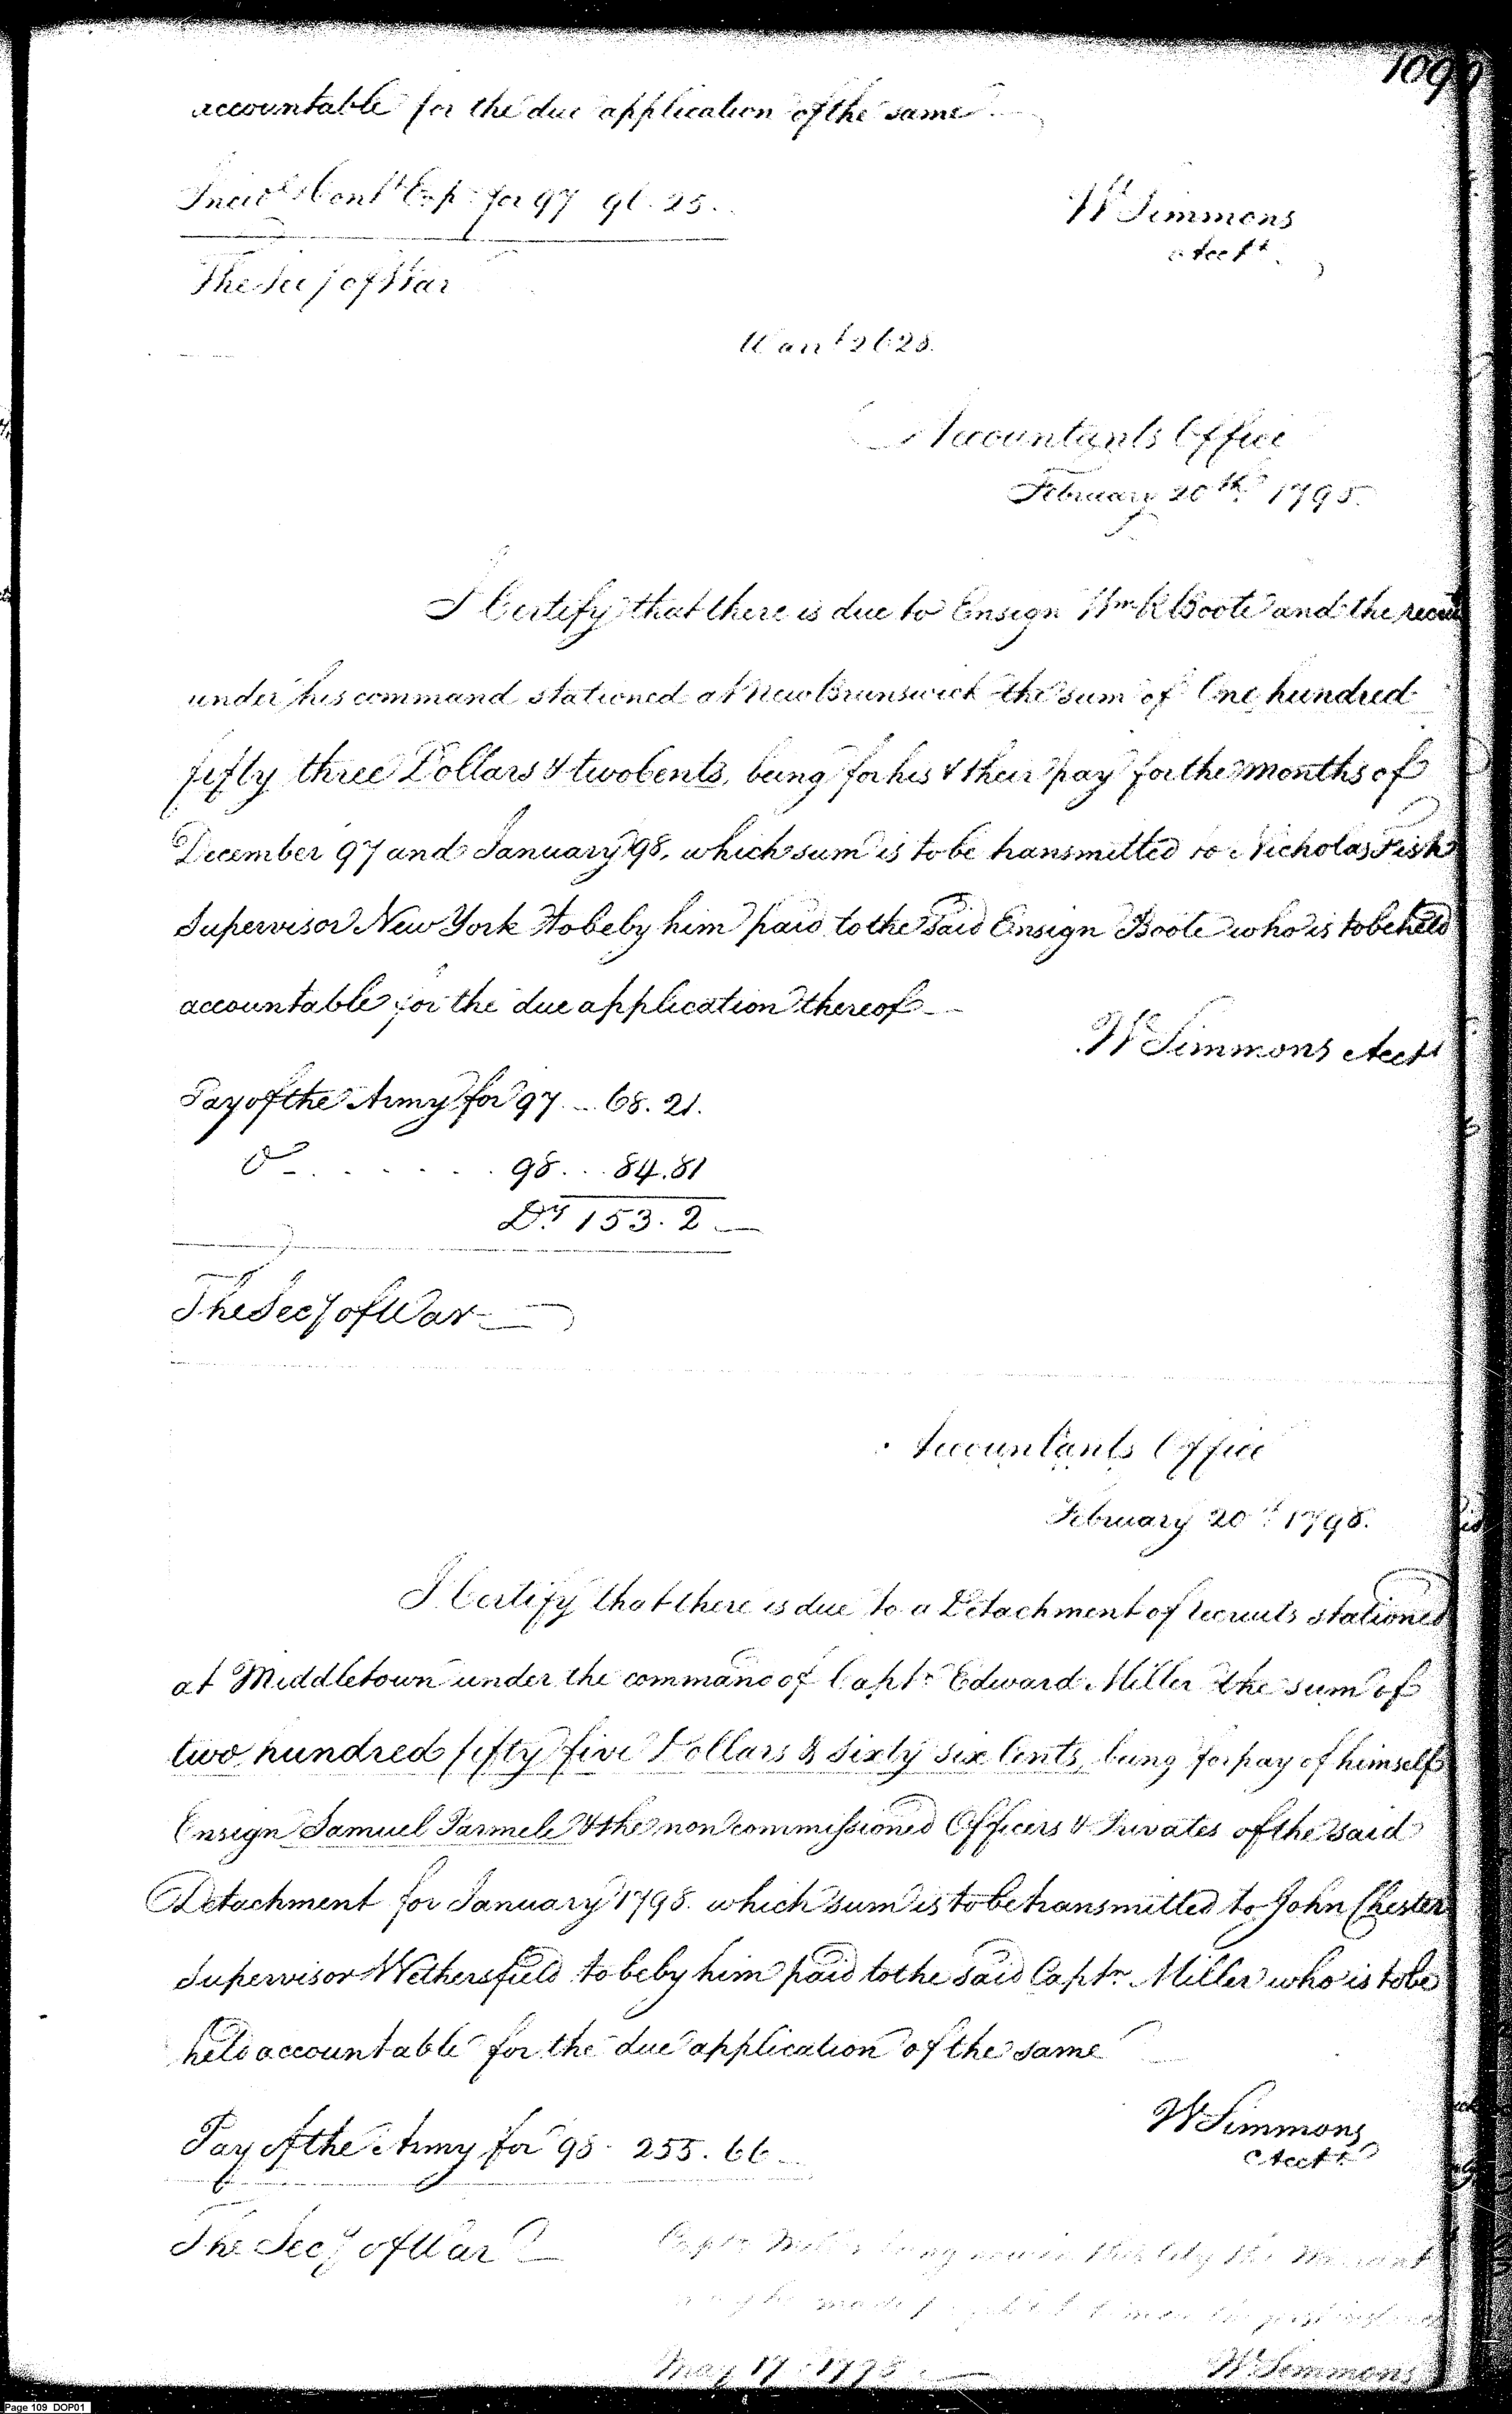 109
accountable for the due application of the same
Incidl & Contt Exps for 97 91.25.
W Simmons
Acctt
The Secy of War
Warrt 2628.
Accountants Office
February 20th 1798.
I Certify that there is due to Ensign Wm R Boote and the
under his command stationed at New Brunswick the sum of One hundred
fifty three Dollars & two Cents, being for his & their pay for the months of
December 97 and January 98, which sum is to be transmitted to Nicholas Fish
Supervisor New York to be by him paid to the said Ensign Boote who is to be held
accountable for the due application thereof
W Simmons Acctt
Pay of the Army for 97 ... 68.21.
Do ....... 98 ... 84.81
Drs 153.2
The Secy of War
Accountants Office
February 20th 1798.
I Certify that there is due to a Detachment of recruits stationed
at Middletown under the command of Captn Edward Miller the sum of
two hundred fifty five Dollars & sixty six Cents, being for pay of himself
Ensign Samuel Parmele & the non commissioned Officers & Privates of the said
Detachment for January 1798. which sum is to be transmitted to John Chester
Supervisor Wethersfield to be by him paid to the said Captn Miller who is to be
held accountable for the due application of the same
W Simmons
Acctt
Pay of the Army for 98 - 255.66
The Secy of War
Captn Miller being now in this City the Warrant
may be made
May 17 1798
W Simmons
Page 109 DOP01